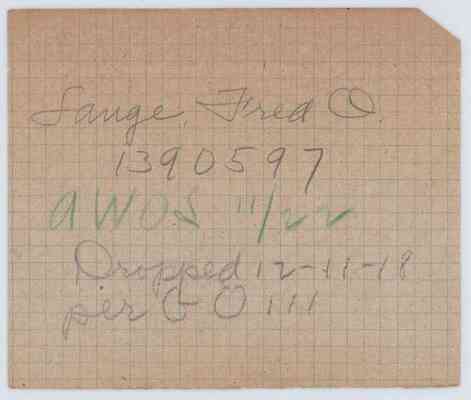 Lange, Fred O.
1390597
AWOL 11/22
Dropped 12-11-18
per G O 111